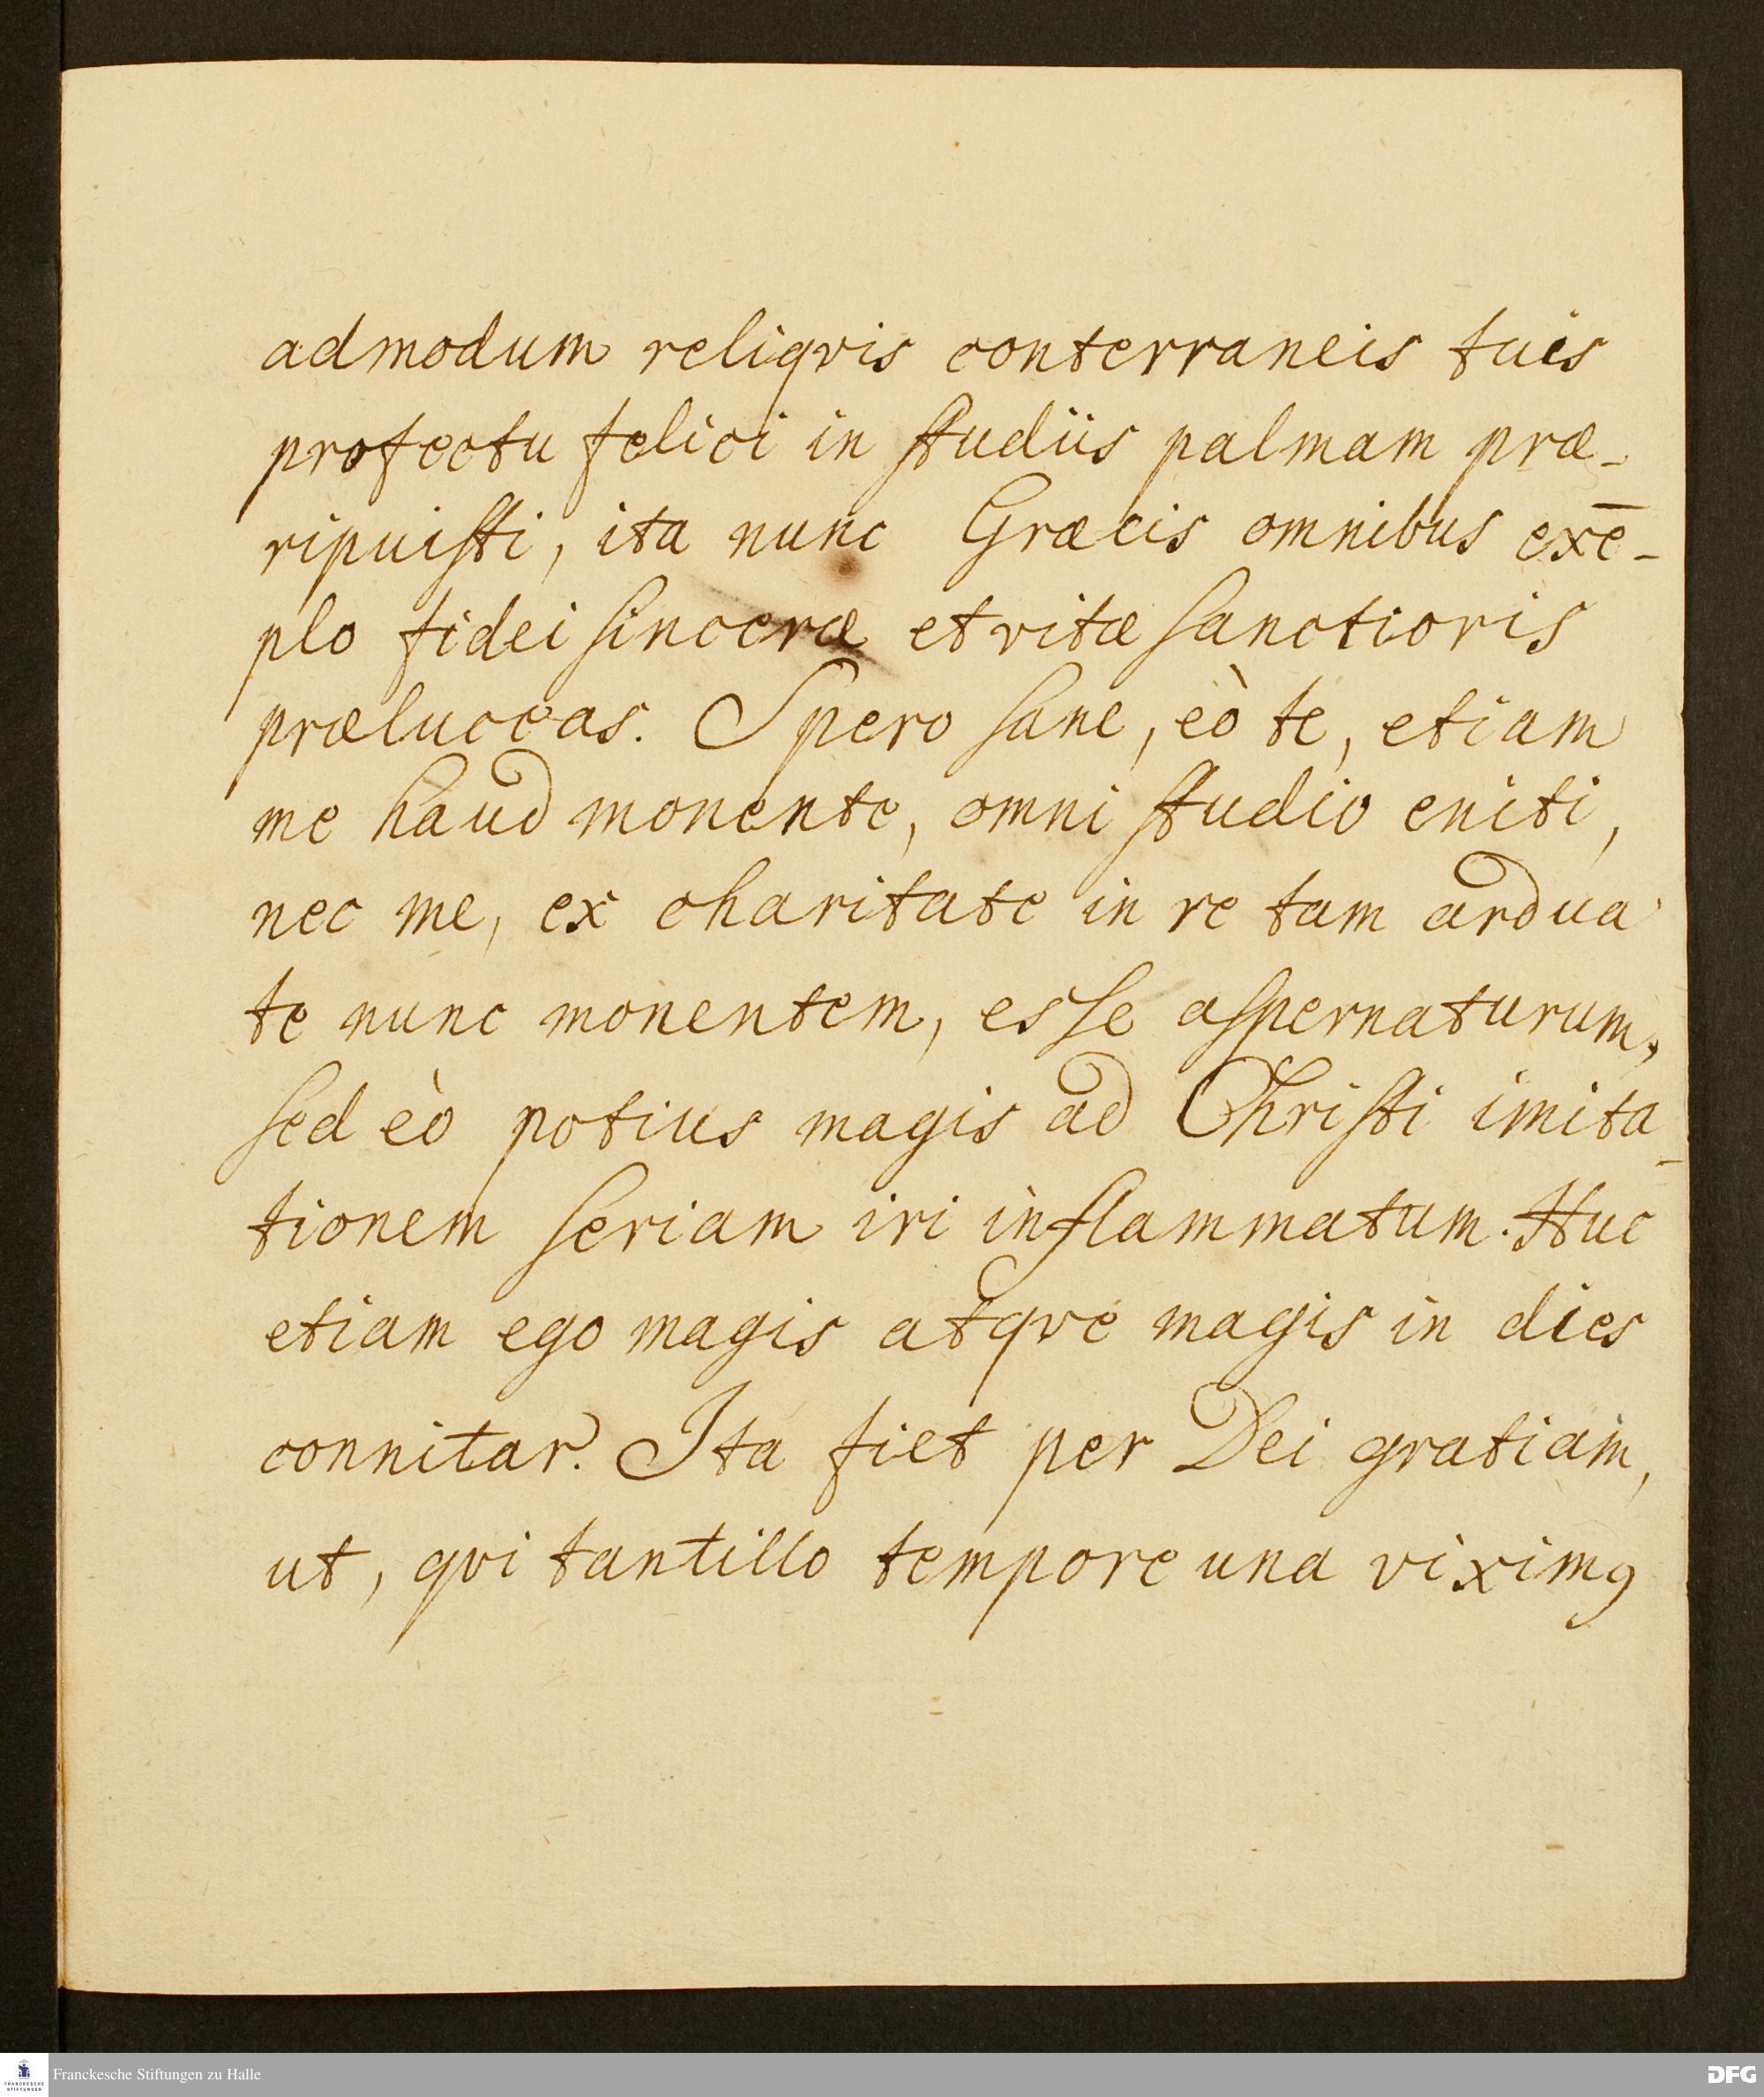 admodum reliqvis conterraneis tuis
profectu felici in studiis palmam præ-
ripuisti, ita nunc Græcis omnibus exē-
plo fidei sinceræ et vitæ sanctioris
præluceas. Spero sane, eò te, etiam
me haud monente, omni studio eniti,
nec me, ex charitate in re tam ardua
te nunc monentem, esse aspernaturum,
sed eò potius magis ad Christi imita-
tionem seriam iri inflammatum. Huc
etiam ego magis atqve magis in dies
connitar. Ita fiet per Dei gratiam,
ut, qvi tantillo tempore una viximꝰ
Franckesche Stiftungen zu Halle
FRANCKESCHE
STIFTUNGEN
DFG